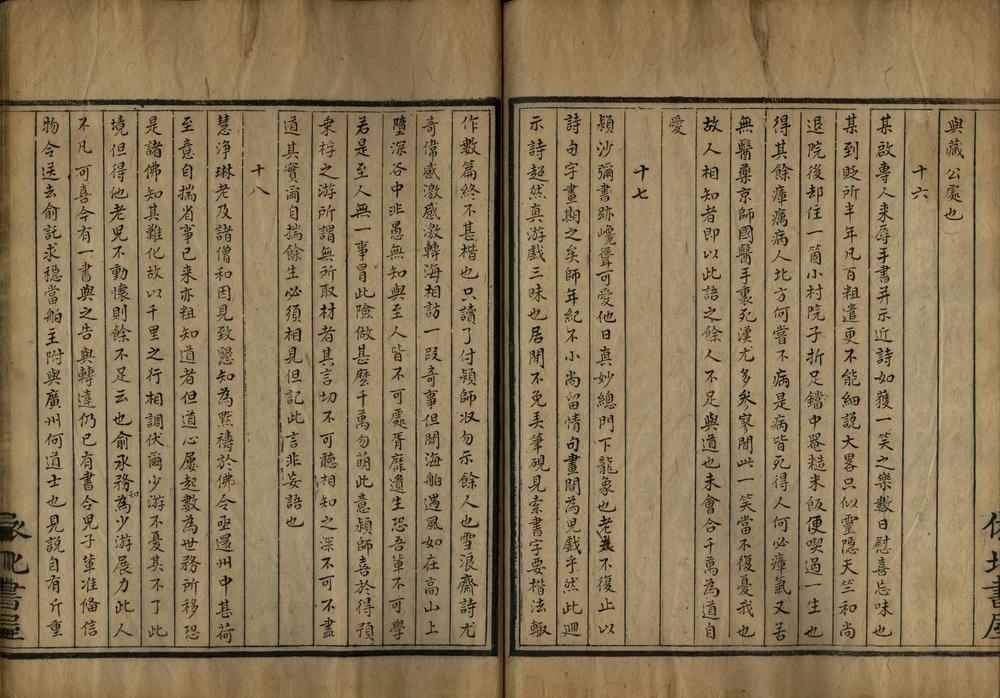 與藏公處也
十六
某啟專人來辱手書幷示近詩如獲一笑之樂數日慰喜忘味也
某到貶所半年凡百粗遣更不能細說大畧只似靈隱天竺和尚
退院後却住一箇小村院子折足鐺中罨糙米飯便喫過一生也
得其餘瘴癘病人北方何嘗不病是病皆死得人何必瘴氣又苦
無醫藥京師國醫手裏死漢尤多參寥聞此一笑當不復憂我也
故人相知者即以此語之餘人不足與道也未會合千萬為道自
愛
十七
潁沙彌書跡巉聳可愛他日真妙總門下龍象也老夫不復止以
詩句字畫期之矣師年紀不小尚留情句畫間為兒戲乎然此迴
示詩超然真游戲三昧也居閒不免弄筆硯見索書字要楷法輙
作數篇終不甚楷也只讀了付潁師收勿示餘人也雪浪齋詩尤
奇偉感激感激轉海相訪一段奇事但聞海舶遇風如在高山上
墮深谷中非愚無知與至人皆不可處胥靡遺生恐吾輩不可學
若是至人無一事冒此險做甚麽千萬勿萌此意潁師喜於得預
乗桴之游所謂無所取材者其言切不可聽相知之深不可不盡
道其實爾自揣餘生必須相見但記此言非妄語也
十八
慧浄琳老及諸僧和因見致懇知為黙禱於佛令亟還州中甚荷
至意自揣省事已來亦粗知道者但道心屢起數為世務所移恐
是諸佛知其難化故以千里之行相調伏爾少游不憂其不了此
境但得他老兒不動懷則餘不足云也俞承務知為少游展力此人
不凡可喜今有一書與之告與轉達仍已有書令兒子輩准備信
物令送去俞託求穩當舶主附與廣州何道士也見說自有斤重